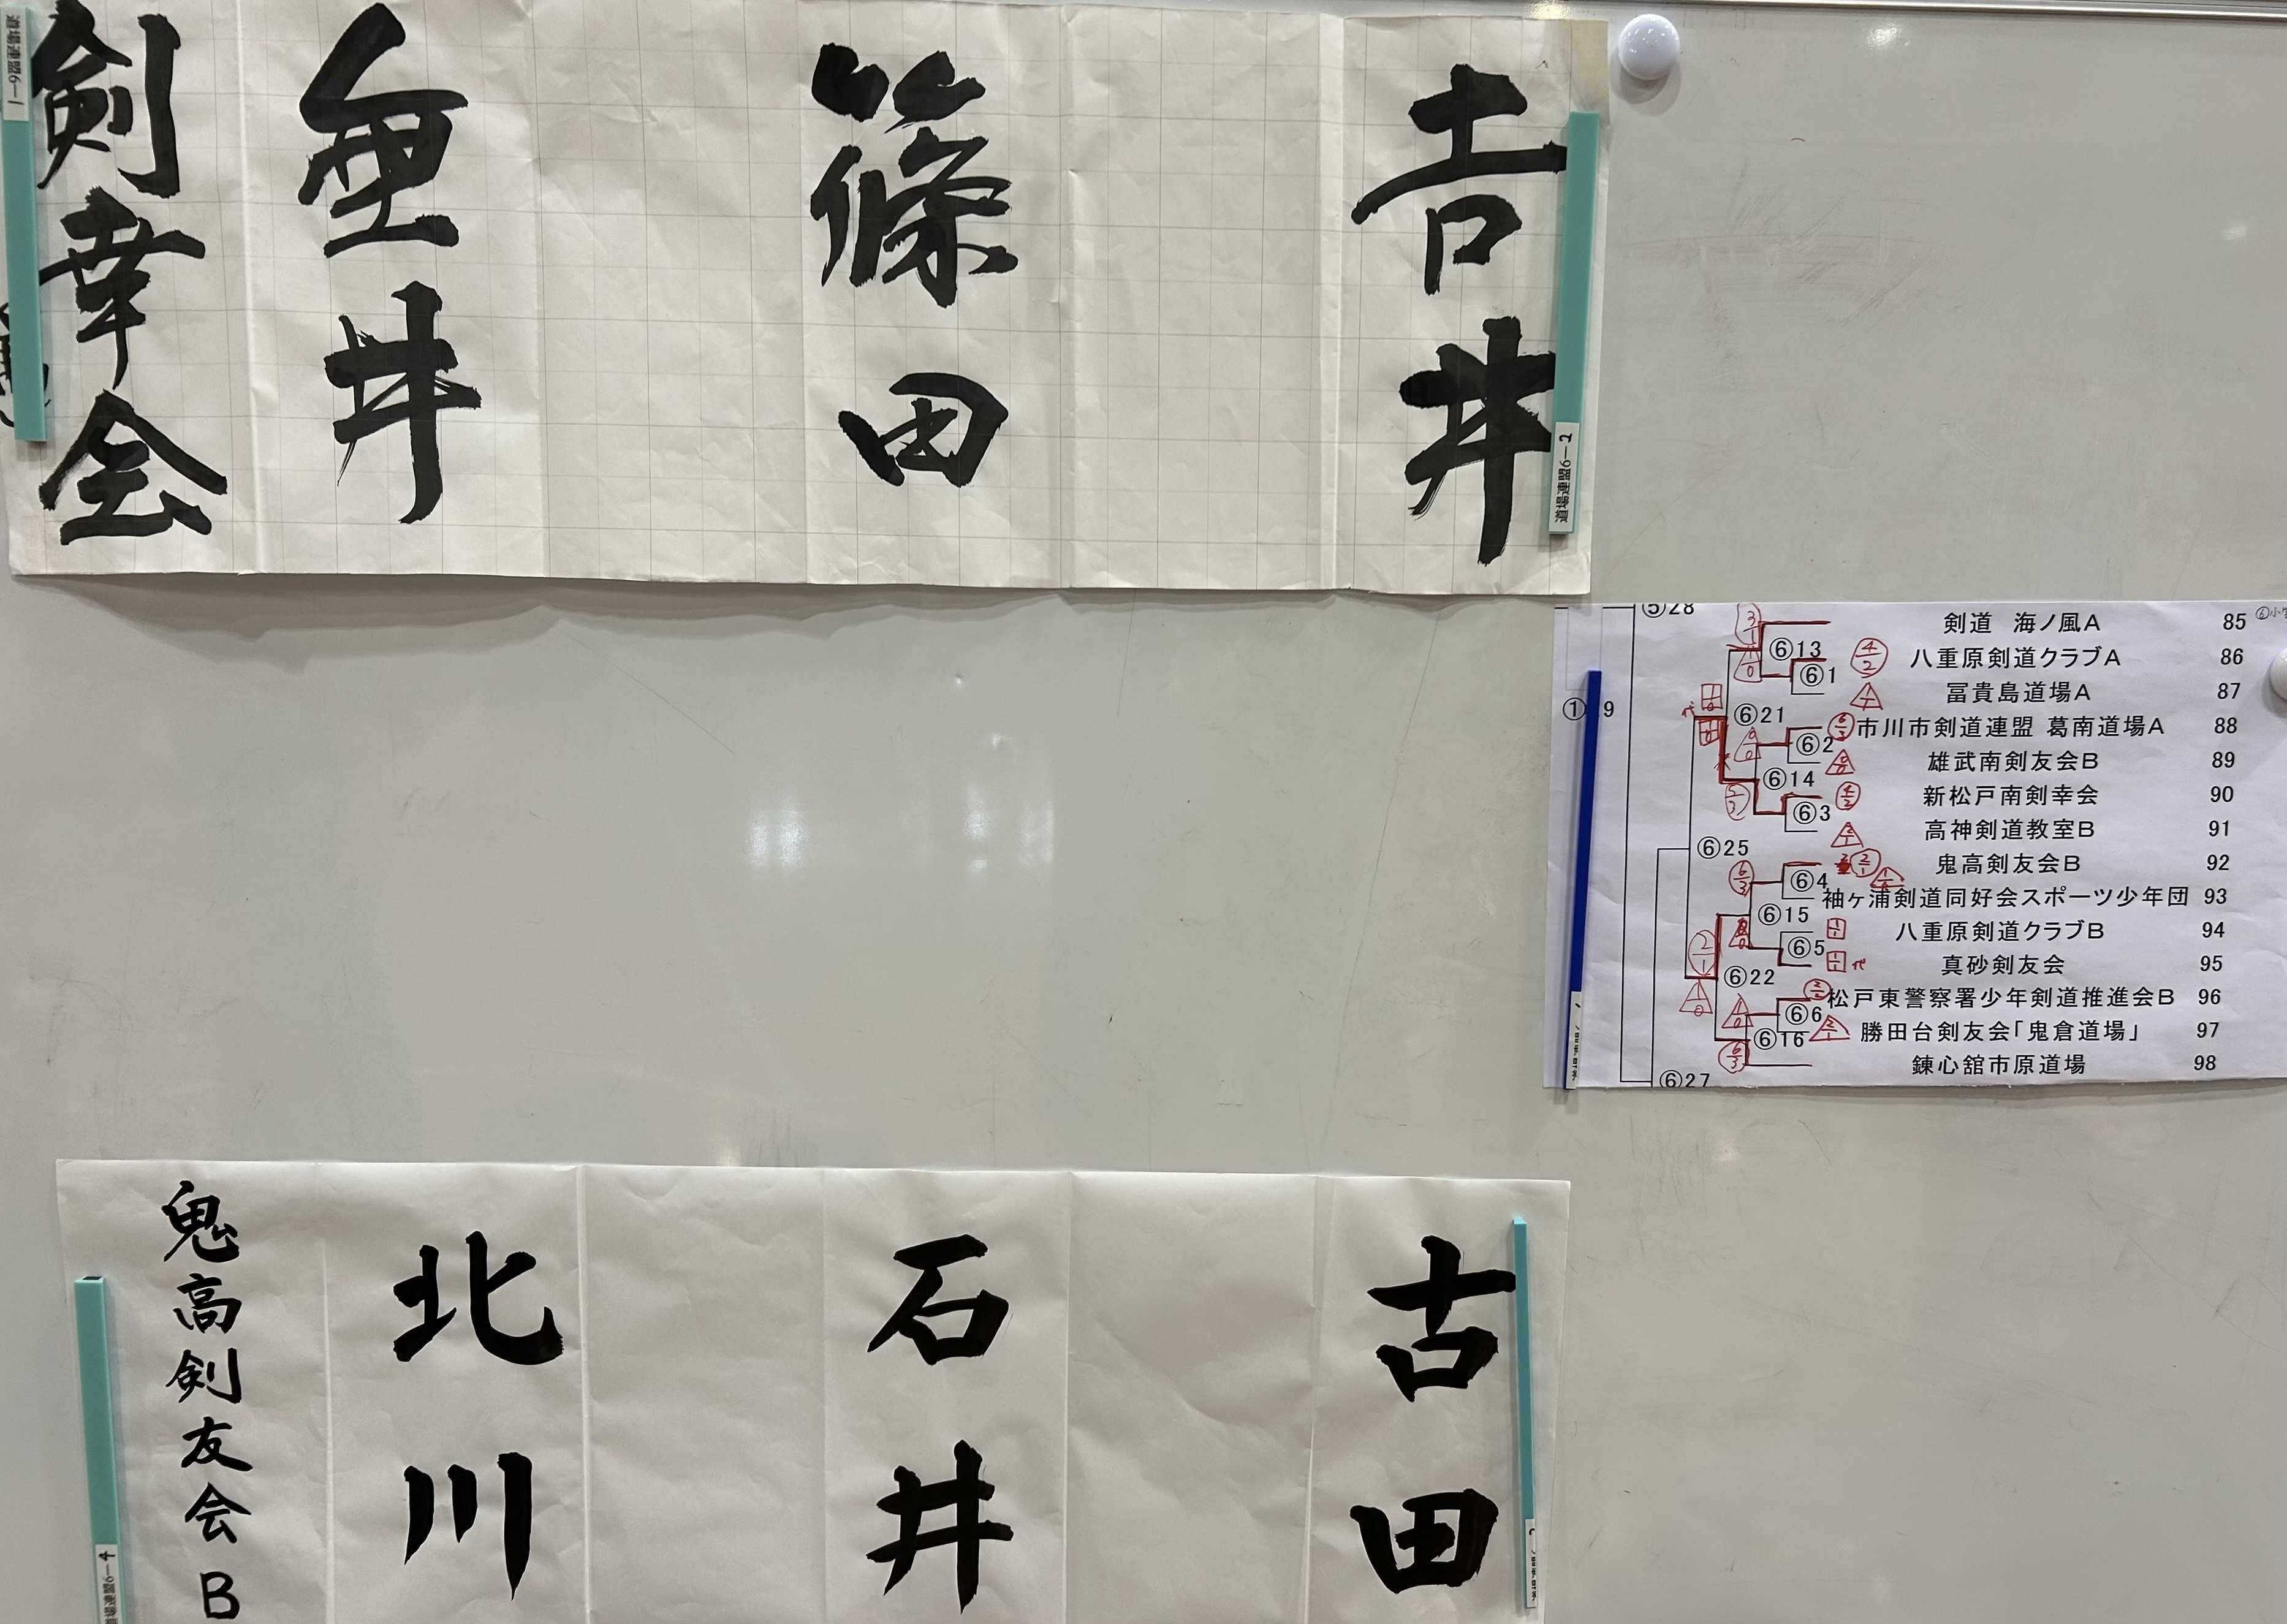 吉井
篠田
無井
剣幸会
道場連盟6－1
道場連盟6－2
⑤28
剣道 海ノ風A 85
⑥13
八重原剣道クラブA 86
4/2
⑥1
冨貴島道場A 87
①
9
⑥21
市川市剣道連盟 葛南道場A 88
6/3
⑥2
雄武南剣友会B 89
⑥14
新松戸南剣幸会 90
4/2
⑥3
高神剣道教室B 91
⑥25
鬼高剣友会B 92
2/1
⑥4
袖ヶ浦剣道同好会スポーツ少年団 93
⑥15
八重原剣道クラブB 94
⑥5
真砂剣友会 95
代
⑥22
松戸東警察署少年剣道推進会B 96
⑥6
勝田台剣友会「鬼倉道場」 97
2/1
⑥16
錬心舘市原道場 98
6/3
⑥27
古田
石井
北川
鬼高剣友会B
道場連盟6－4